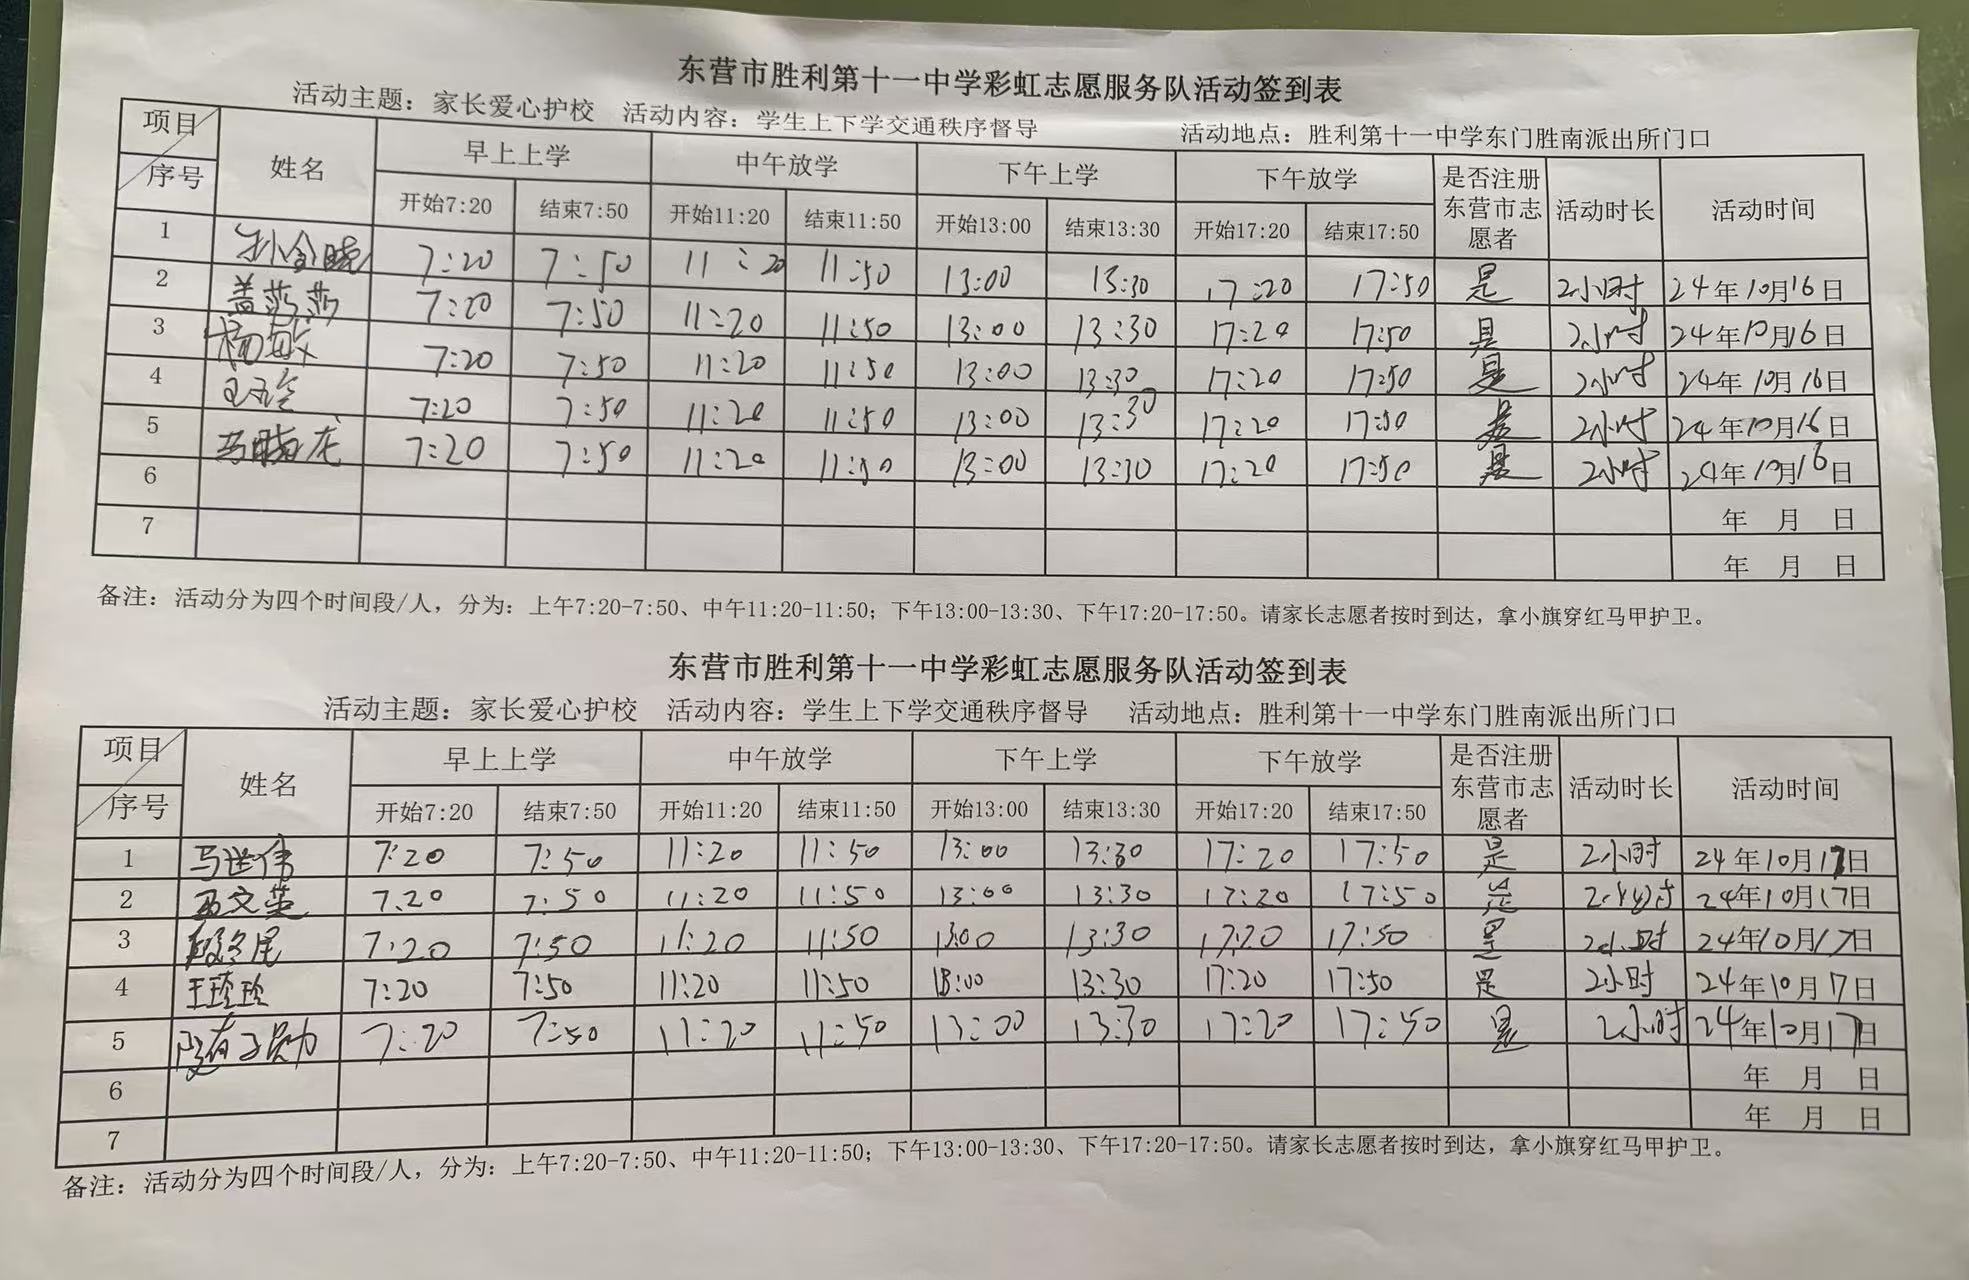 东营市胜利第十一中学彩虹志愿服务队活动签到表
活动主题：家长爱心护校 活动内容：学生上下学交通秩序督导 活动地点：胜利第十一中学东门胜南派出所门口
项目 序号 姓名 早上上学 中午放学 下午上学 下午放学 是否注册东营市志愿者 活动时长 活动时间
开始7:20 结束7:50 开始11:20 结束11:50 开始13:00 结束13:30 开始17:20 结束17:50
1 孙金晓 7:20 7:50 11:20 11:50 13:00 13:30 17:20 17:50 是 2小时 24年10月16日
2 盖莎莎 7:20 7:50 11:20 11:50 13:00 13:30 17:20 17:50 是 2小时 24年10月16日
3 杨敏 7:20 7:50 11:20 11:50 13:00 13:30 17:20 17:50 是 2小时 24年10月16日
4 7:20 7:50 11:20 11:50 13:00 13:30 17:20 17:50 是 2小时 24年10月16日
5 马晓龙 7:20 7:50 11:20 11:50 13:00 13:30 17:20 17:50 是 2小时 24年10月16日
6 年 月 日
7 年 月 日
备注：活动分为四个时间段/人，分为：上午7:20-7:50、中午11:20-11:50；下午13:00-13:30、下午17:20-17:50。请家长志愿者按时到达，拿小旗穿红马甲护卫。
东营市胜利第十一中学彩虹志愿服务队活动签到表
活动主题：家长爱心护校 活动内容：学生上下学交通秩序督导 活动地点：胜利第十一中学东门胜南派出所门口
项目 序号 姓名 早上上学 中午放学 下午上学 下午放学 是否注册东营市志愿者 活动时长 活动时间
开始7:20 结束7:50 开始11:20 结束11:50 开始13:00 结束13:30 开始17:20 结束17:50
1 7:20 7:50 11:20 11:50 13:00 13:30 17:20 17:50 是 2小时 24年10月17日
2 7:20 7:50 11:20 11:50 13:00 13:30 17:20 17:50 是 2小时 24年10月17日
3 7:20 7:50 11:20 11:50 13:00 13:30 17:20 17:50 是 2小时 24年10月17日
4 王玲玲 7:20 7:50 11:20 11:50 13:00 13:30 17:20 17:50 是 2小时 24年10月17日
5 7:20 7:50 11:20 11:50 13:00 13:30 17:20 17:50 是 2小时 24年10月17日
6 年 月 日
7 年 月 日
备注：活动分为四个时间段/人，分为：上午7:20-7:50、中午11:20-11:50；下午13:00-13:30、下午17:20-17:50。请家长志愿者按时到达，拿小旗穿红马甲护卫。